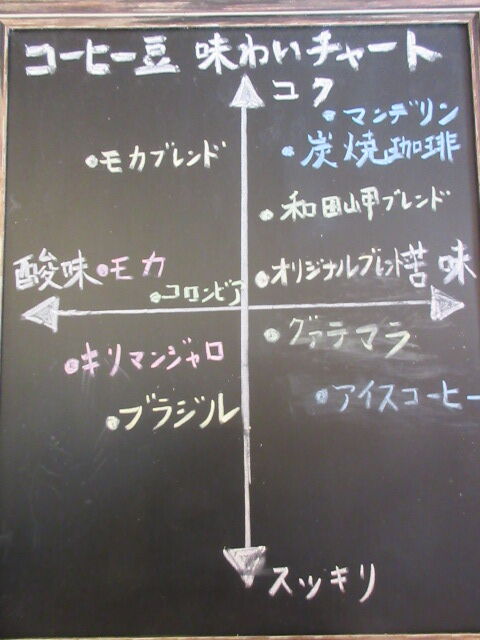 コーヒー豆 味わいチャート
コク
マンデリン
炭焼珈琲
モカブレンド
和田岬ブレンド
酸味
モカ
オリジナルブレンド
苦味
コロンビア
グァテマラ
キリマンジャロ
アイスコーヒー
ブラジル
スッキリ